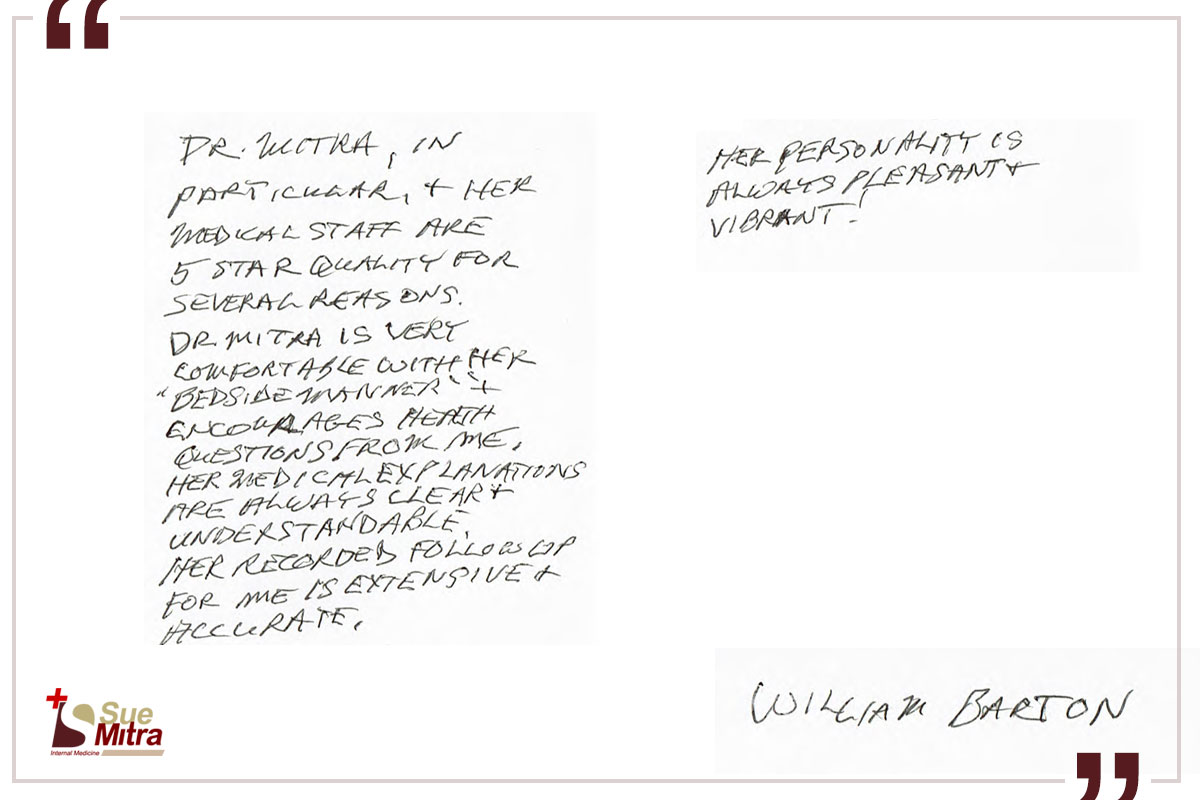 “
DR. MITRA, IN
PARTICULAR, + HER
MEDICAL STAFF ARE
5 STAR QUALITY FOR
SEVERAL REASONS.
DR. MITRA IS VERY
COMFORTABLE WITH HER
"BEDSIDE MANNER" +
ENCOURAGES HEALTH
QUESTIONS FROM ME.
HER MEDICAL EXPLANATIONS
ARE ALWAYS CLEAR +
UNDERSTANDABLE.
HER RECORDED FOLLOW UP
FOR ME IS EXTENSIVE +
ACCURATE.
HER PERSONALITY IS
ALWAYS PLEASANT +
VIBRANT!
WILLIAM BARTON
”
Sue
Mitra
Internal Medicine